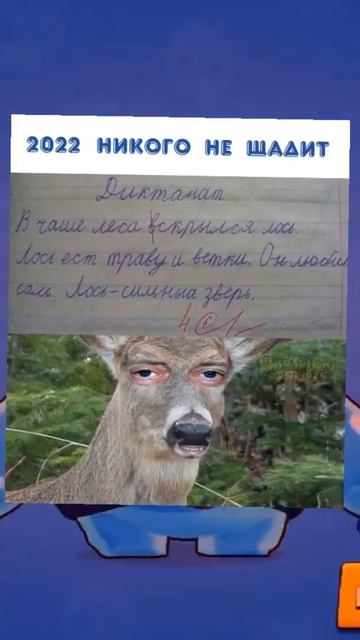 2022 НИКОГО НЕ ЩАДИТ
Диктанат
В чаше леса вскрылся лось.
Лось ест траву и ветки. Он люби
соль. Лось-симныа зверь.